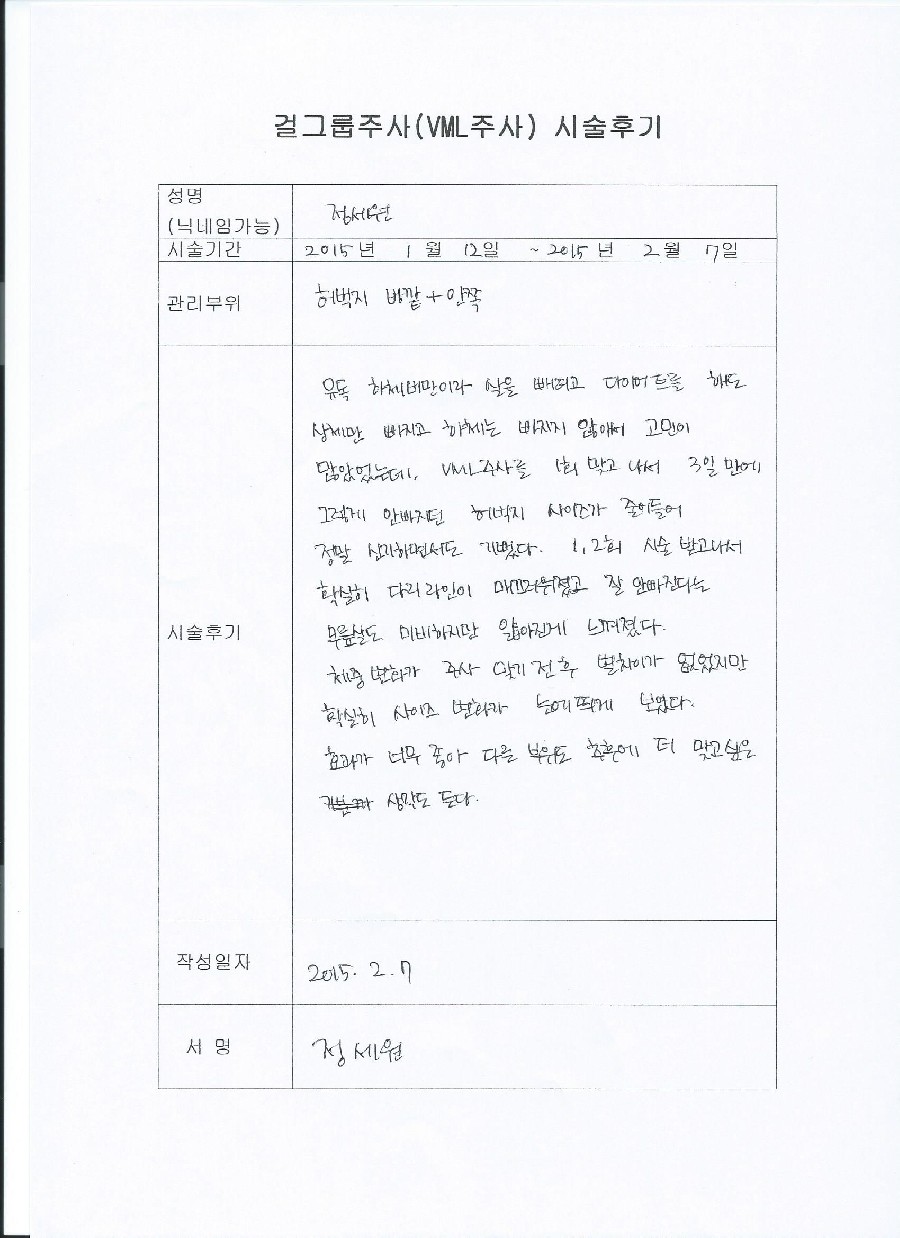 걸그룹주사(VML주사) 시술후기
성명
(닉네임가능)
정세원
시술기간
2015년 1월 12일 ~ 2015년 2월 7일
관리부위
허벅지 바깥+안쪽
유독 하체비만이라 살을 빼려고 다이어트를 해도
상체만 빠지고 하체는 빠지지 않아서 고민이
많았었는데, VML주사를 1회 맞고 나서 3일 만에
그렇게 안빠지던 허벅지 사이즈가 줄어들어
정말 신기하면서도 기뻤다. 1,2회 시술 받고나서
확실히 다리라인이 매끄러워졌고 잘 안빠진다는
시술후기
무릎살도 미비하지만 얇아진게 느껴졌다.
체중 변화가 주사 맞기 전후 별차이가 없었지만
확실히 사이즈 변화가 눈에 띄게 보였다.
효과가 너무 좋아 다른 부위도 추후에 더 맞고싶은
생각도 든다.
작성일자
2015. 2. 7
서 명
정세원